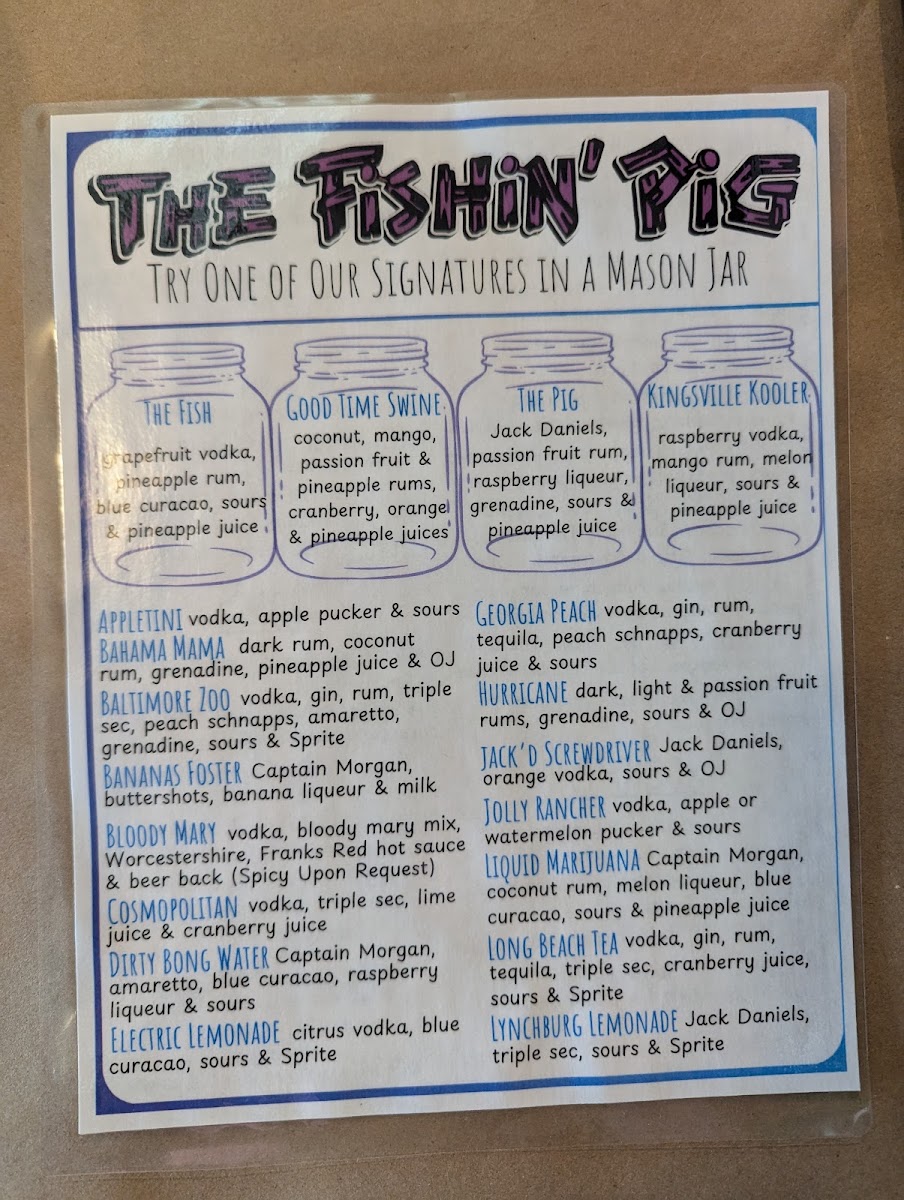 THE FISHIN' PIG
TRY ONE OF OUR SIGNATURES IN A MASON JAR
THE FISH
grapefruit vodka,
pineapple rum,
blue curacao, sours
& pineapple juice
GOOD TIME SWINE
coconut, mango,
passion fruit &
pineapple rums,
cranberry, orange
& pineapple juices
THE PIG
Jack Daniels,
passion fruit rum,
raspberry liqueur,
grenadine, sours &
pineapple juice
KINGSVILLE KOOLER
raspberry vodka,
mango rum, melon
liqueur, sours &
pineapple juice
APPLETINI vodka, apple pucker & sours
BAHAMA MAMA dark rum, coconut
rum, grenadine, pineapple juice & OJ
BALTIMORE ZOO vodka, gin, rum, triple
sec, peach schnapps, amaretto,
grenadine, sours & Sprite
BANANAS FOSTER Captain Morgan,
buttershots, banana liqueur & milk
BLOODY MARY vodka, bloody mary mix,
Worcestershire, Franks Red hot sauce
& beer back (Spicy Upon Request)
COSMOPOLITAN vodka, triple sec, lime
juice & cranberry juice
DIRTY BONG WATER Captain Morgan,
amaretto, blue curacao, raspberry
liqueur & sours
ELECTRIC LEMONADE citrus vodka, blue
curacao, sours & Sprite
GEORGIA PEACH vodka, gin, rum,
tequila, peach schnapps, cranberry
juice & sours
HURRICANE dark, light & passion fruit
rums, grenadine, sours & OJ
JACK'D SCREWDRIVER Jack Daniels,
orange vodka, sours & OJ
JOLLY RANCHER vodka, apple or
watermelon pucker & sours
LIQUID MARIJUANA Captain Morgan,
coconut rum, melon liqueur, blue
curacao, sours & pineapple juice
LONG BEACH TEA vodka, gin, rum,
tequila, triple sec, cranberry juice,
sours & Sprite
LYNCHBURG LEMONADE Jack Daniels,
triple sec, sours & Sprite